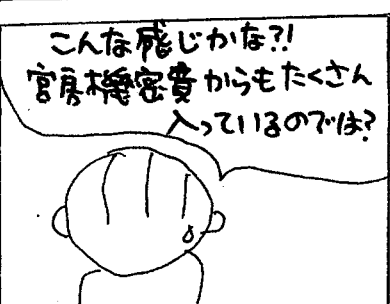 こんな感じかな?!
官房機密費からもたくさん
入っているのでは?